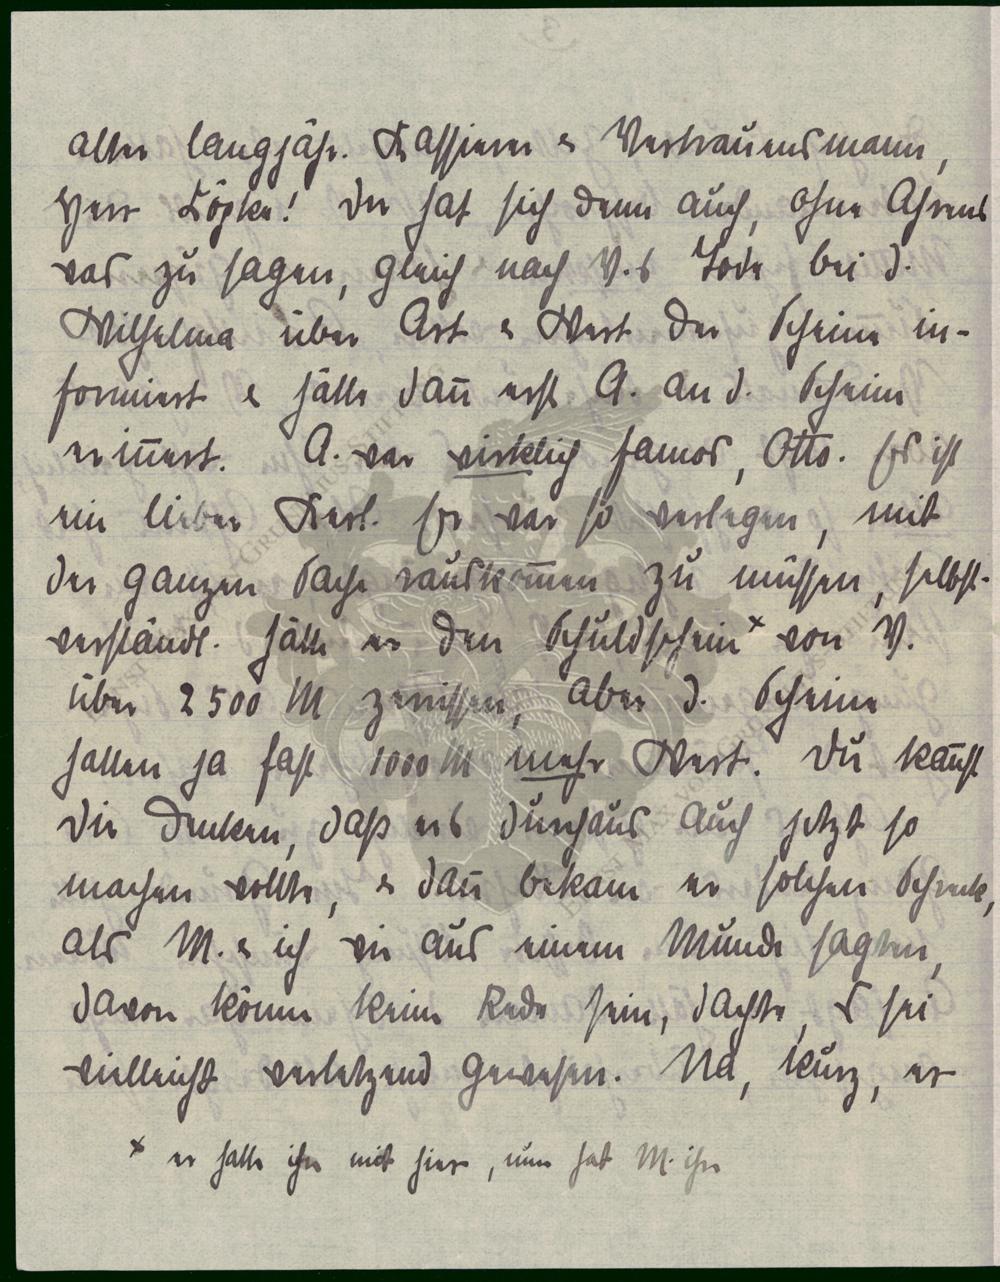 alter langjähr. Kassierer & Vertrauensmann,
Herr Köpke! Der hat sich denn auch, ohne Ahrens
was zu sagen, gleich nach V.s Tode bei d.
Wilhelma über Art & Wert der Scheine in-
formiert & hätte dan̄ erst A. an d. Scheine
erin̄ert. A. war wirklich famos, Otto. Es ist
ein lieber Kerl. Er war so verlegen, mit
der ganzen Sache rauskom̄en zu müssen, selbst-
verständl. hätte er den Schuldschein x von V.
über 2500 M zerrissen, aber d. Scheine
hatten ja fast 1000 M mehr Wert. Du kan̄st
Dir denken, daß er's durchaus auch jetzt so
machen wollte, & dan̄ bekam er solchen Schreck,
als M. & ich wie aus einem Munde sagten,
davon könne keine Rede sein, dachte, es sei
vielleicht verletzend gewesen. Na, kurz, er
x er hatte ihn mit hier, nun hat M. ihn